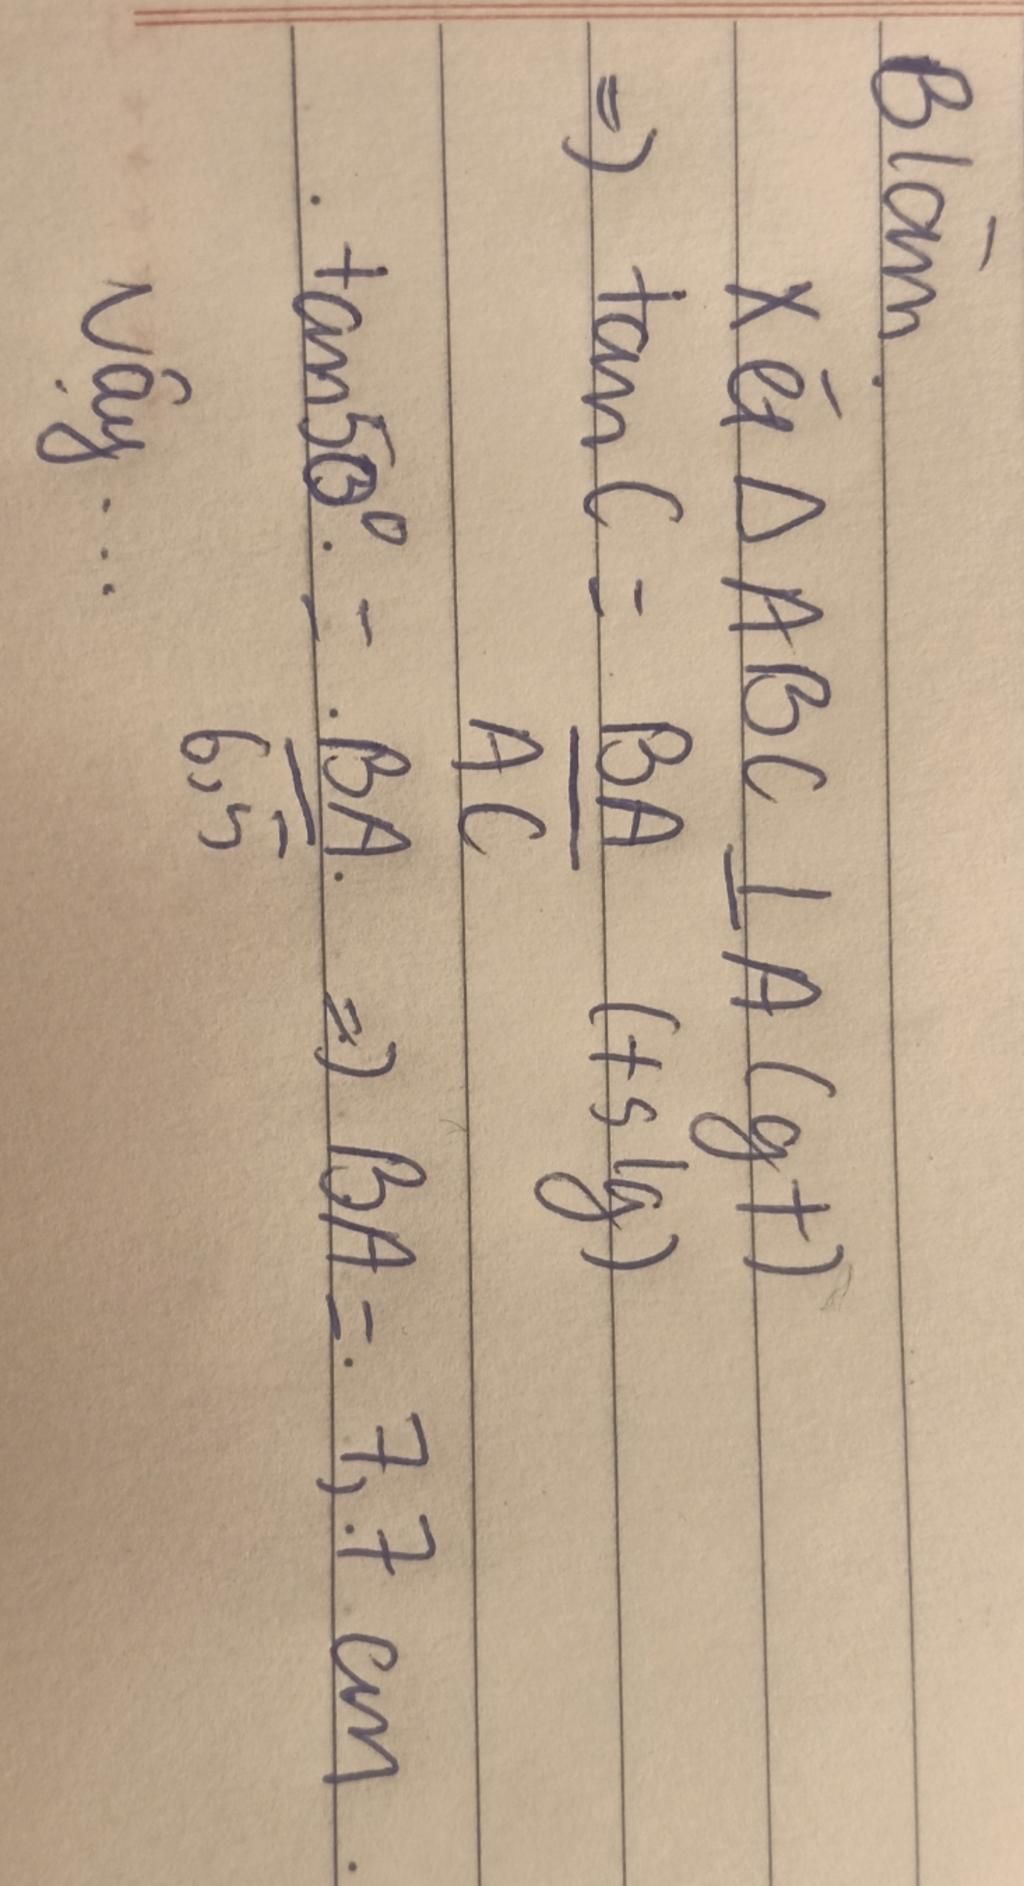 B làm.
Xét Δ ABC ⊥ A (gt)
=) tan C = BA (tslg)
AC
tan50° = BA =) BA = 7,7 cm.
6,5
Vậy...